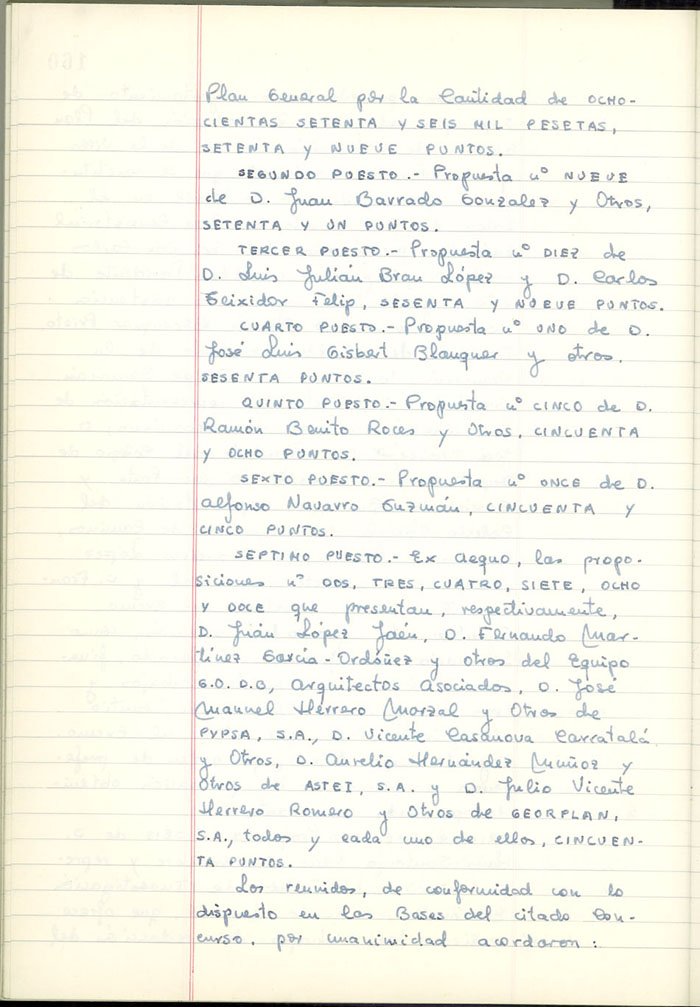 160
Plan General por la Cantidad de OCHO-
CIENTAS SETENTA Y SEIS MIL PESETAS,
SETENTA Y NUEVE PUNTOS.
SEGUNDO PUESTO.- Propuesta nº NUEVE
de D. Juan Barrado Gonzalez y Otros,
SETENTA Y UN PUNTOS.
TERCER PUESTO.- Propuesta nº DIEZ de
D. Luis Julián Brau López y D. Carlos
Teixidor Felip, SESENTA Y NUEVE PUNTOS.
CUARTO PUESTO.- Propuesta nº UNO de D.
José Luis Gisbert Blanquer y otros.
SESENTA PUNTOS.
QUINTO PUESTO.- Propuesta nº CINCO de D.
Ramón Benito Roces y Otros, CINCUENTA
Y OCHO PUNTOS.
SEXTO PUESTO.- Propuesta nº ONCE de D.
Alfonso Navarro Guzmán, CINCUENTA Y
CINCO PUNTOS.
SEPTIMO PUESTO.- Ex aequo, las propo-
siciones nº DOS, TRES, CUATRO, SIETE, OCHO
Y DOCE que presentan, respectivamente,
D. Juán López Jaén, D. Fernando Mar-
tínez García-Ordóñez y otros del Equipo
G.O. D.B, Arquitectos Asociados, D. José
Manuel Herrero Marzal y Otros de
PYPSA, S.A., D. Vicente Casanova Carratalá
y Otros, D. Aurelio Hernández Muñoz y
Otros de ASTEI, S.A. y D. Julio Vicente
Herrero Romero y Otros de GEORPLAN,
S.A., todos y cada uno de ellos, CINCUEN-
TA PUNTOS.
Los reunidos, de conformidad con lo
dispuesto en las Bases del citado Con-
curso, por unanimidad acordaron: